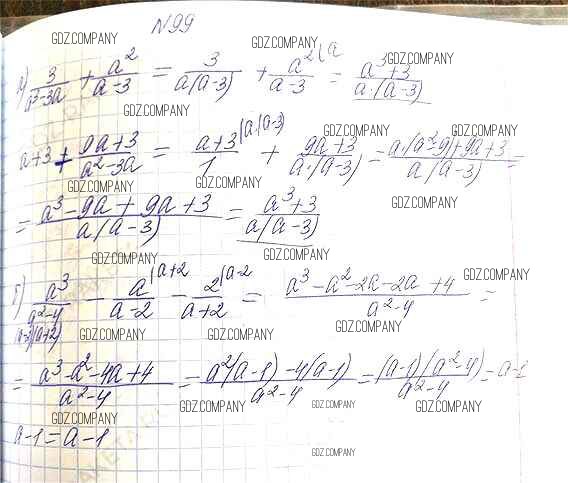 N99
GDZ.COMPANY GDZ.COMPANY GDZ.COMPANY
а) 3/(a²-3a) + a²/(a-3) = 3/(a(a-3)) + a²(a/(a-3) = (a³+3)/(a·(a-3))
GDZ.COMPANY GDZ.COMPANY
a+3 + (9a+3)/(a²-3a) = (a+3)/1 (a·(a-3) + (9a+3)/(a·(a-3)) = (a·(a²-9)+9a+3)/(a(a-3)) =
GDZ.COMPANY GDZ.COMPANY
GDZ.COMPANY GDZ.COMPANY GDZ.COMPANY
= (a³-9a+9a+3)/(a(a-3)) = (a³+3)/(a(a-3))
GDZ.COMPANY GDZ.COMPANY
GDZ.COMPANY
б) a³/(a²-4) - a(a+2/(a-2) - 2(a-2/(a+2) = (a³-a²-2a-2a+4)/(a²-4) =
(a-2)(a+2)
GDZ.COMPANY GDZ.COMPANY GDZ.COMPANY
= (a³-a²-4a+4)/(a²-4) = (a²(a-1)-4(a-1))/(a²-4) = ((a-1)(a²-4))/(a²-4) = a-1
GDZ.COMPANY GDZ.COMPANY GDZ.COMPANY GDZ.COMPANY
a-1 = a-1
GDZ.COMPANY